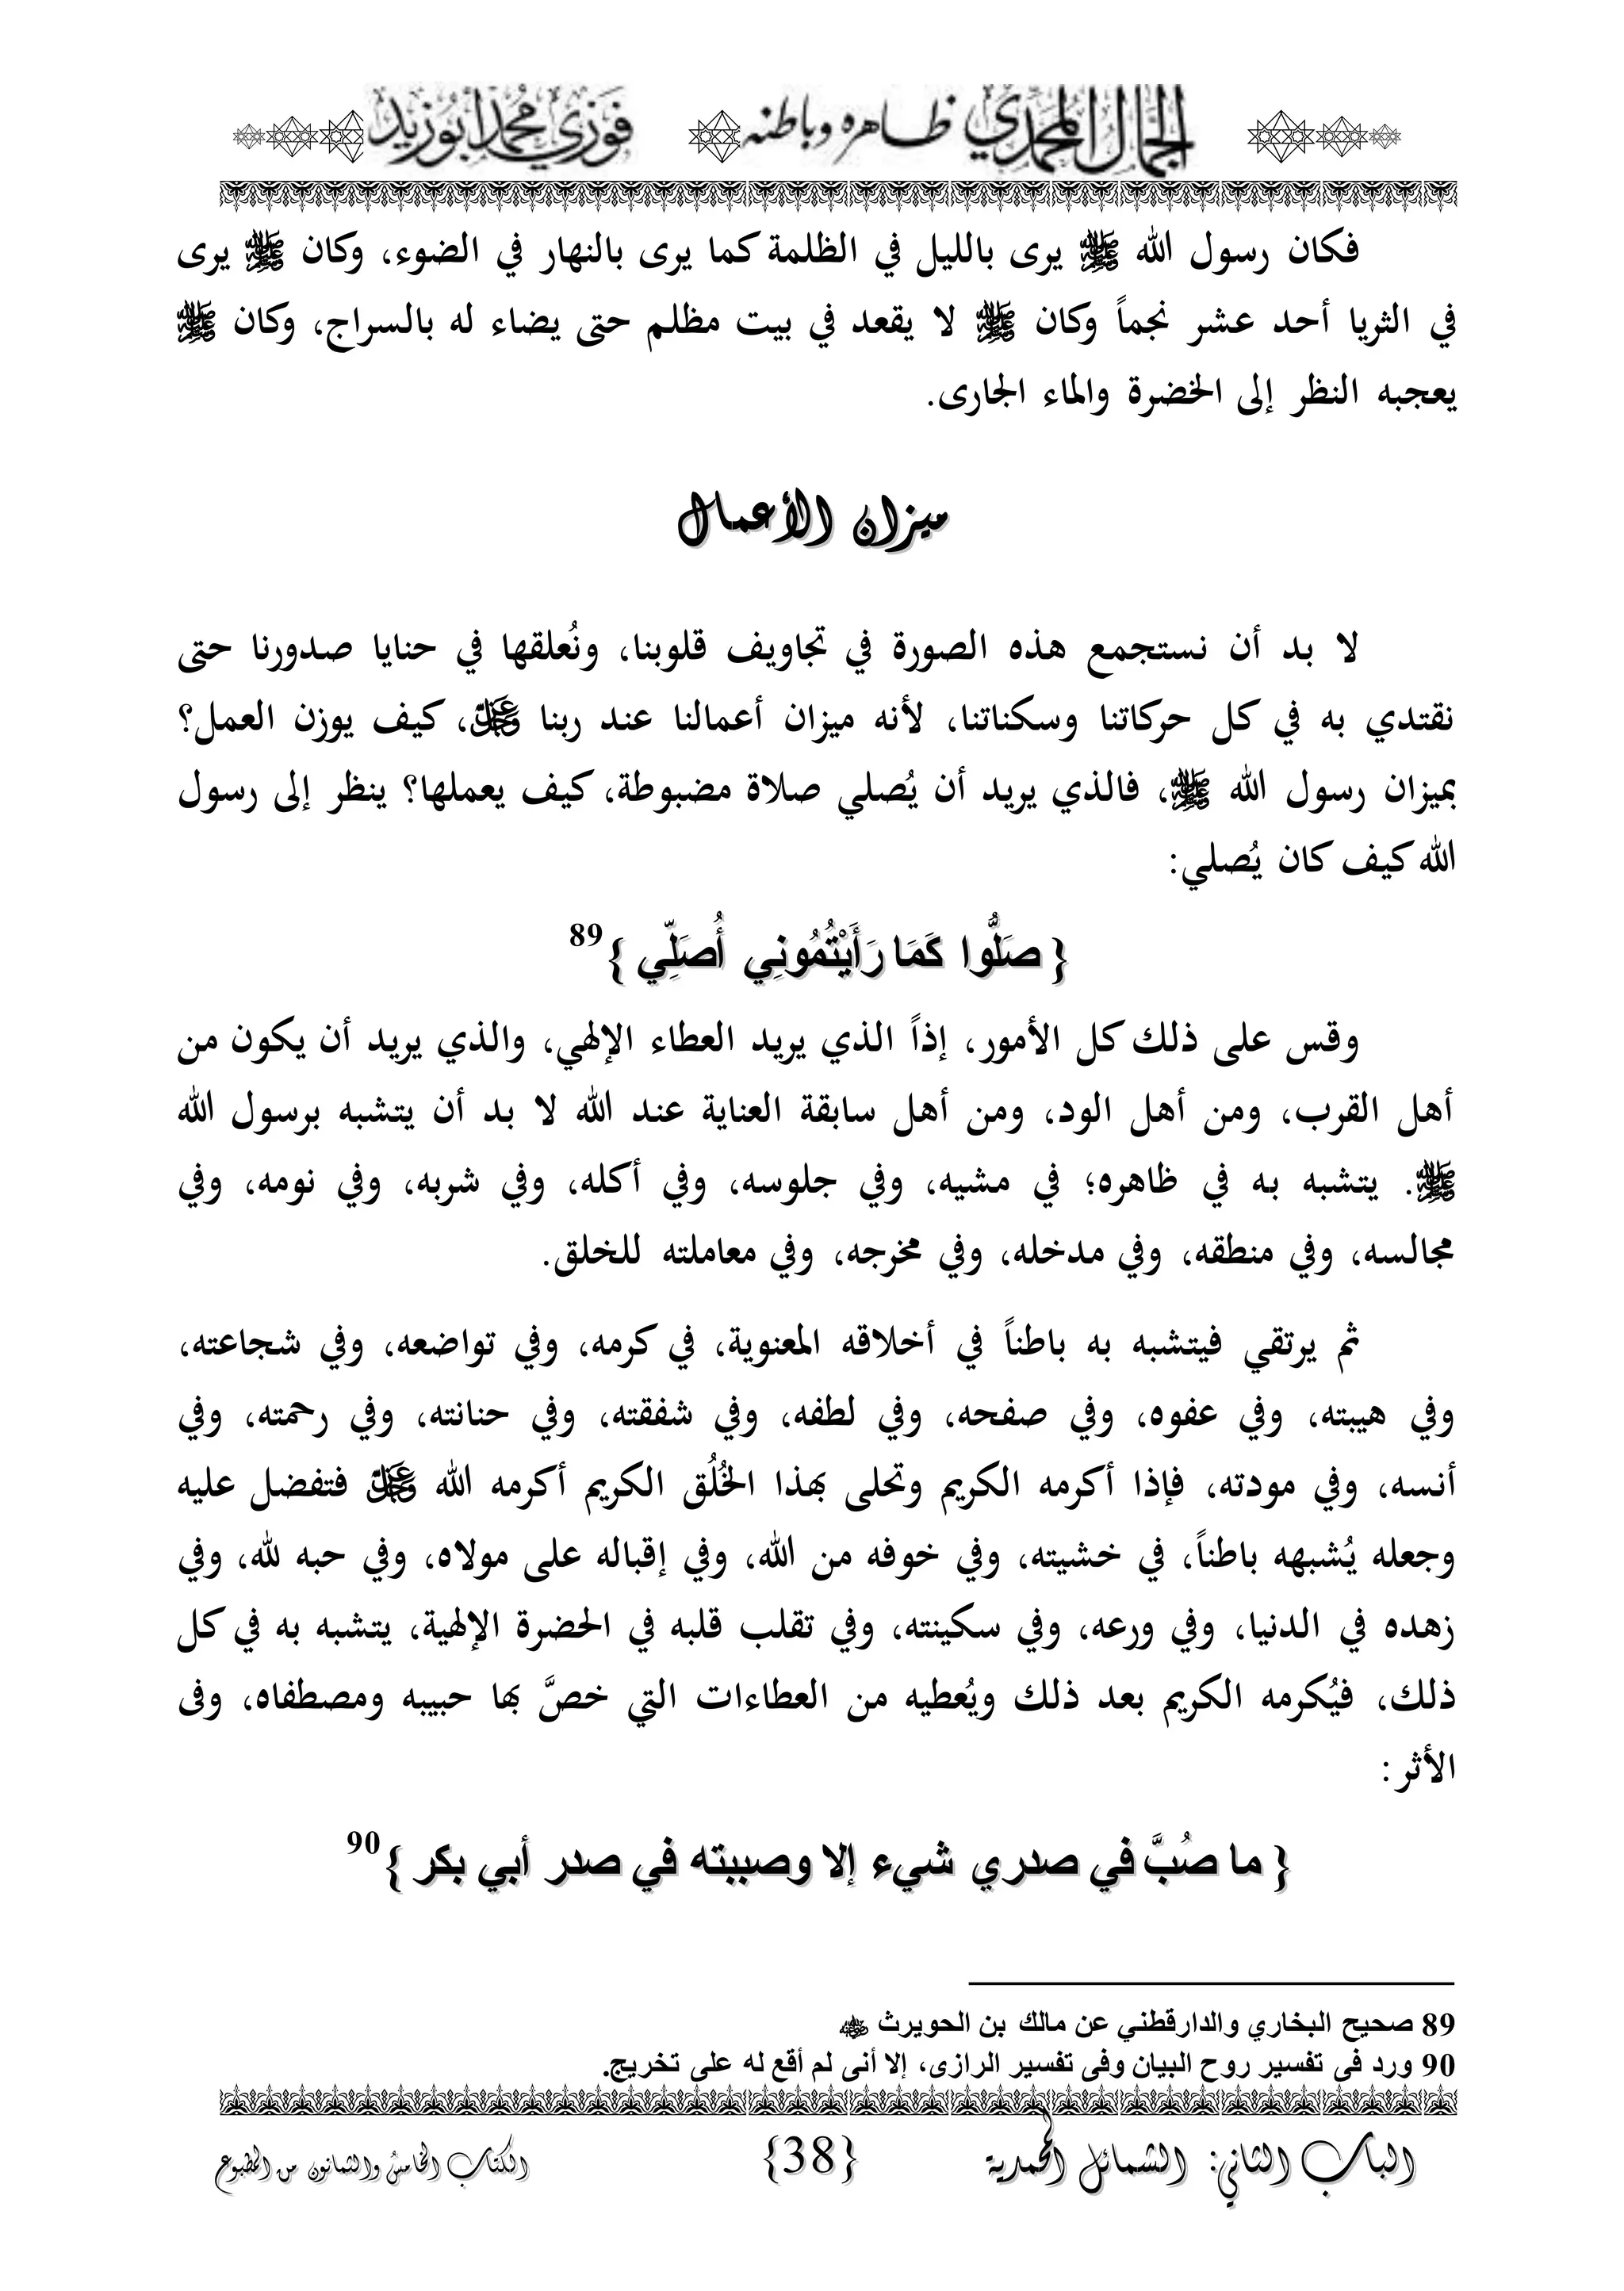 الجمال المحمدي ظاهره وباطنه فوزي محمد أبوزيد
فكان رسول الله ﷺ يرى بالليل في الظلمة كما يرى بالنهار في الضوء، وكان ﷺ يرى
في الثريا أحد عشر نجماً وكان ﷺ لا يقعد في بيت مظلم حتى يضاء له بالسراج، وكان ﷺ
يعجبه النظر إلى الخضرة والماء الجارى.
ميزان الأعمال
لا بد أن نستجمع هذه الصورة في تجاويف قلوبنا، ونُعلقها في حنايا صدورنا حتى
نقتدي به في كل حركاتنا وسكناتنا، لأنه ميزان أعمالنا عند ربنا عز وجل، كيف يوزن العمل؟
بميزان رسول الله ﷺ، فالذي يريد أن يُصلي صلاة مضبوطة، كيف يعملها؟ ينظر إلى رسول
الله كيف كان يُصلي:
{ صَلُّوا كَمَا رَأَيْتُمُونِي أُصَلِّي }89
وقس على ذلك كل الأمور، إذاً الذي يريد العطاء الإلهي، والذي يريد أن يكون من
أهل القرب، ومن أهل الود، ومن أهل سابقة العناية عند الله لا بد أن يتشبه برسول الله
ﷺ. يتشبه به في ظاهره؛ في مشيه، وفي جلوسه، وفي أكله، وفي شربه، وفي نومه، وفي
مجالسه، وفي منطقه، وفي مدخله، وفي مخرجه، وفي معاملته للخلق.
ثم يرتقي فيتشبه به باطناً في أخلاقه المعنوية، في كرمه، وفي تواضعه، وفي شجاعته،
وفي هيبته، وفي عفوه، وفي صفحه، وفي لطفه، وفي شفقته، وفي حنانته، وفي رحمته، وفي
أنسه، وفي مودته، فإذا أكرمه الكريم وتحلى بهذا الخُلُق الكريم أكرمه الله عز وجل فتفضل عليه
وجعله يُشبهه باطناً، في خشيته، وفي خوفه من الله، وفي إقباله على مولاه، وفي حبه لله، وفي
زهده في الدنيا، وفي ورعه، وفي سكينته، وفي تقلب قلبه في الحضرة الإلهية، يتشبه به في كل
ذلك، فيُكرمه الكريم بعد ذلك ويُعطيه من العطاءات التي خصَّ بها حبيبه ومصطفاه، وفى
الأثر:
{ ما صُبَّ في صدري شيء إلا وصببته في صدر أبي بكر }90
89 صحيح البخاري والدارقطني عن مالك بن الحويرث
90 ورد فى تفسير روح البيان وفى تفسير الرازى، إلا أنى لم أقع له على تخريج.
الباب الثاني: الشمائل المحمدية {38} الكتاب الخامس والثمانون من المطبوع